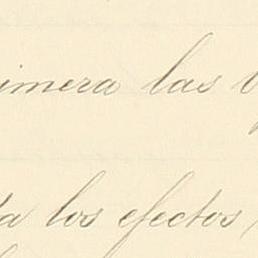 imera las
ta los efectos